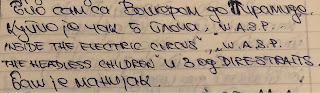 Био сам са Вокером до Пирамиде.
Купио је чак 5 плоча, "W.A.S.P.
INSIDE THE ELECTRIC CIRCUS", "W.A.S.P.
THE HEADLESS CHILDREN" и 3 од DIRE STRAITS.
Баш је манијак.